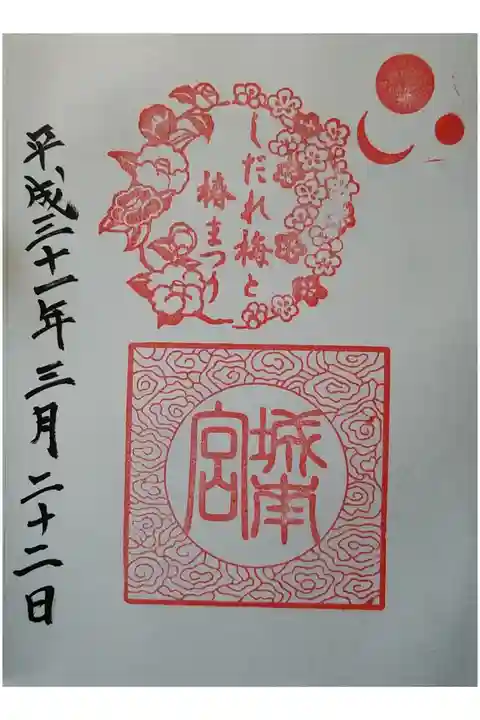 しだれ梅と
椿まつり
城南
宮
平成三十一年三月二十二日